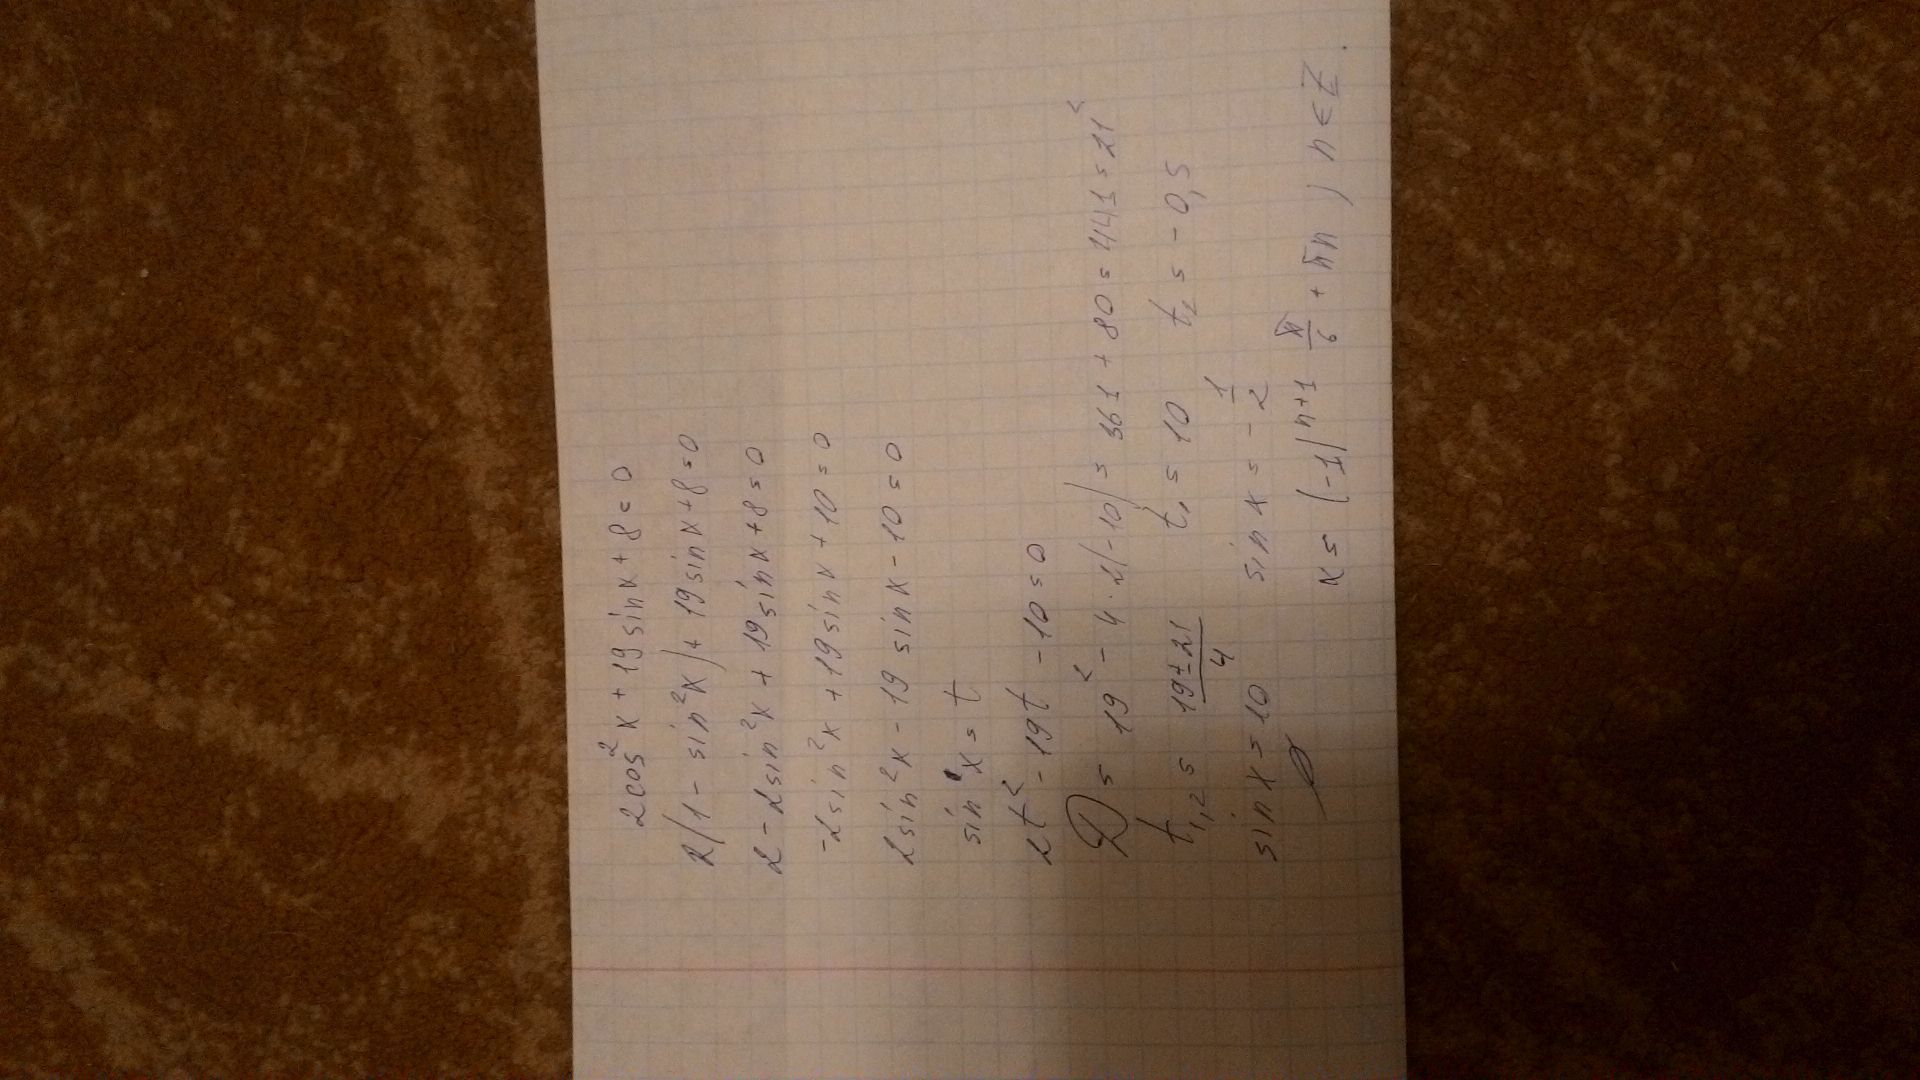 2cos²x + 19sinx + 8 = 0
2(1 - sin²x) + 19sinx + 8 = 0
2 - 2sin²x + 19sinx + 8 = 0
-2sin²x + 19sinx + 10 = 0
2sin²x - 19sinx - 10 = 0
sin x = t
2t² - 19t - 10 = 0
D = 19² - 4·2(-10) = 361 + 80 = 441 = 21²
t₁,₂ = (19 ± 21)/4 t₁ = 10 t₂ = -0,5
sin x = 10 sin x = -1/2
∅ x = (-1)ⁿ⁺¹ π/6 + πn, n ∈ Z.